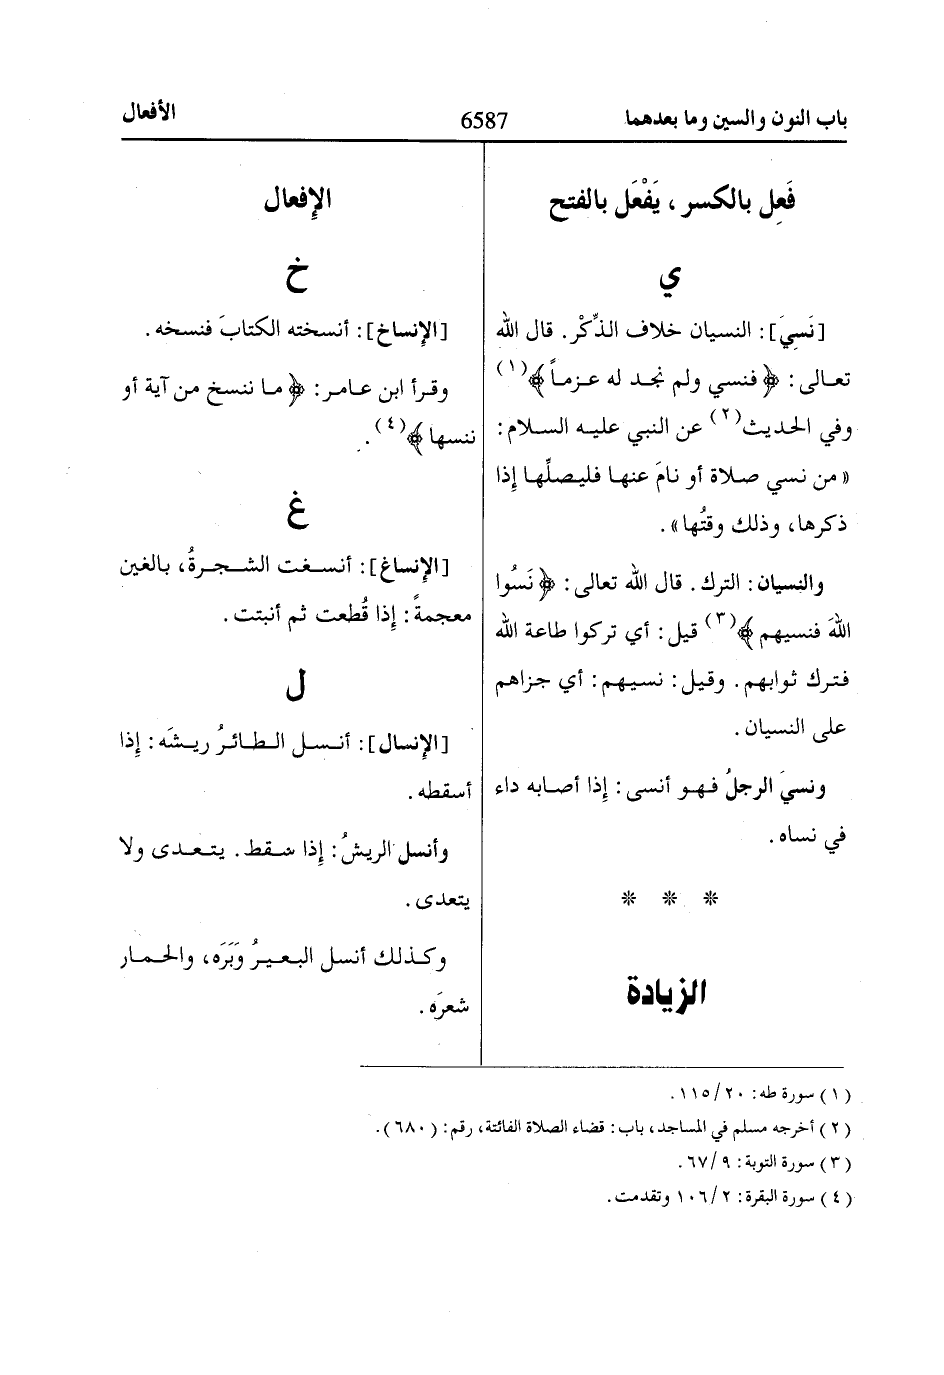 باب النون والسين وما بعدهما
6587
الأفعال
فَعِل بالكسر ، يَفْعَل بالفتح
ي
[نَسِيَ]: النسيان خلاف الذِّكْر. قال الله
تعالى: ﴿فنسي ولم نجد له عزماً﴾(١)
وفي الحديث(٢) عن النبي عليه السلام:
«من نسي صلاة أو نامَ عنها فليصلِّها إِذا
ذكرها، وذلك وقتُها».
والنسيان: الترك. قال الله تعالى: ﴿نَسُوا
اللهَ فنسيهم﴾(٣) قيل: أي تركوا طاعة الله
فترك ثوابهم. وقيل: نسيهم: أي جزاهم
على النسيان.
ونسيَ الرجلُ فهو أنسى: إِذا أصابه داء
في نساه.
* * *
الزيادة
الإِفعال
خ
[الإِنساخ]: أنسخته الكتابَ فنسخه.
وقرأ ابن عامر: ﴿ما ننسخ من آية أو
ننسها﴾(٤).
غ
[الإِنساغ]: أنسغت الشجرةُ، بالغين
معجمةً: إِذا قُطعت ثم أنبتت.
ل
[الإِنسال]: أنسل الطائرُ ريشَه: إِذا
أسقطه.
وأنسل الريشُ: إِذا سقط. يتعدى ولا
يتعدى.
وكذلك أنسل البعيرُ وَبَرَه، والحمار
شعرَه.
(١) سورة طه: ٢٠/ ١١٥.
(٢) أخرجه مسلم في المساجد، باب: قضاء الصلاة الفائتة، رقم: (٦٨٠).
(٣) سورة التوبة: ٩/ ٦٧.
(٤) سورة البقرة: ٢/ ١٠٦ وتقدمت.